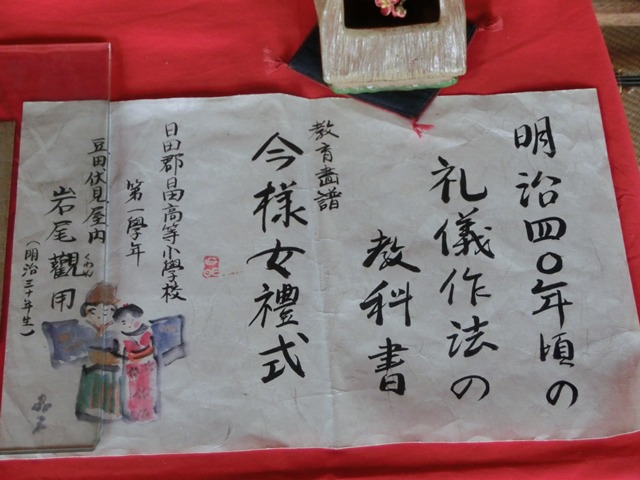 明治四〇年頃の
礼儀作法の
教科書
教育画譜
今様女禮式
日田郡日田高等小學校
第一學年
豆田伏見屋内
岩尾觀用
くわん
(明治三十年生)